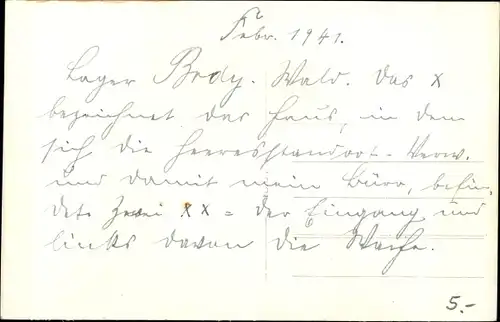 Febr. 1941.
Lager Brdy. Wald. Das x
bezeichnet das Haus, in dem
sich die Heeresstandort-Verw.
und damit mein Büro, befin-
det. Zwei x x = der Eingang und
links davon die Wache.
5.-